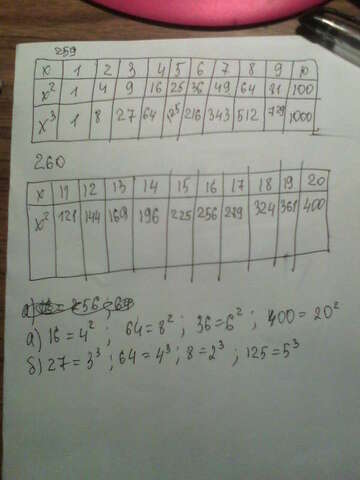 259
x 1 2 3 4 5 6 7 8 9 10
x² 1 4 9 16 25 36 49 64 81 100
x³ 1 8 27 64 125 216 343 512 729 1000
260
x 11 12 13 14 15 16 17 18 19 20
x² 121 144 169 196 225 256 289 324 361 400
а) 16 = 4² ; 64 = 8² ; 36 = 6² ; 400 = 20²
б) 27 = 3³ ; 64 = 4³ ; 8 = 2³ ; 125 = 5³